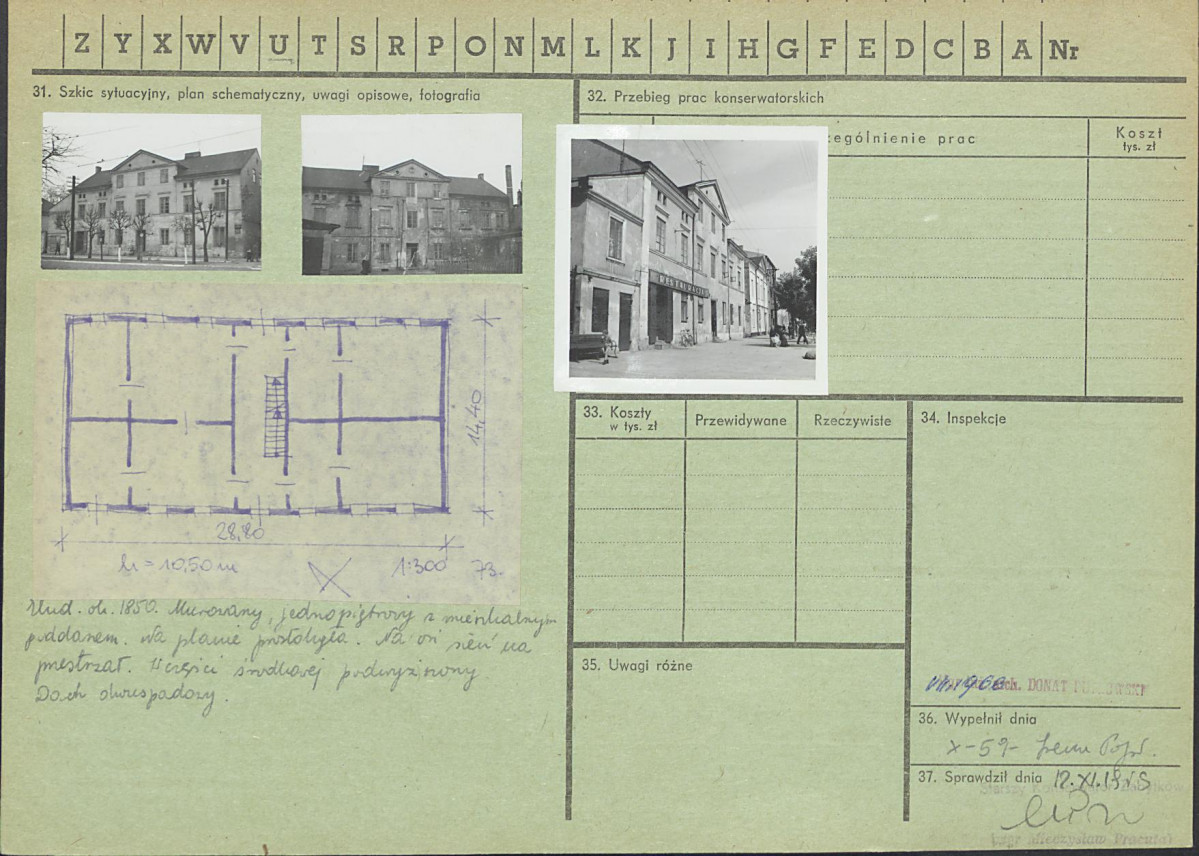 Z Y X W V U T S R P O N M L K J I H G F E D C B A Nr
31. Szkic sytuacyjny, plan schematyczny, uwagi opisowe, fotografia
14,40
28,80
h = 10,50 m 1:300 73.
Zbud. ok. 1850. Murowany, jednopiętrowy z mieszkalnym
poddaszem. Na planie prostokąta. Na osi sień na
przestrzał. W części środkowej podwyższony
Dach dwuspadowy.
32. Przebieg prac konserwatorskich
zególnienie prac
Koszt
tys. zł
RESTAURACJA
33. Koszty
w tys. zł
Przewidywane
Rzeczywiste
34. Inspekcje
35. Uwagi różne
DONAT
36. Wypełnił dnia
X-59-
37. Sprawdził dnia 12.XI.
Starszy
mgr Mieczysław Pracuta